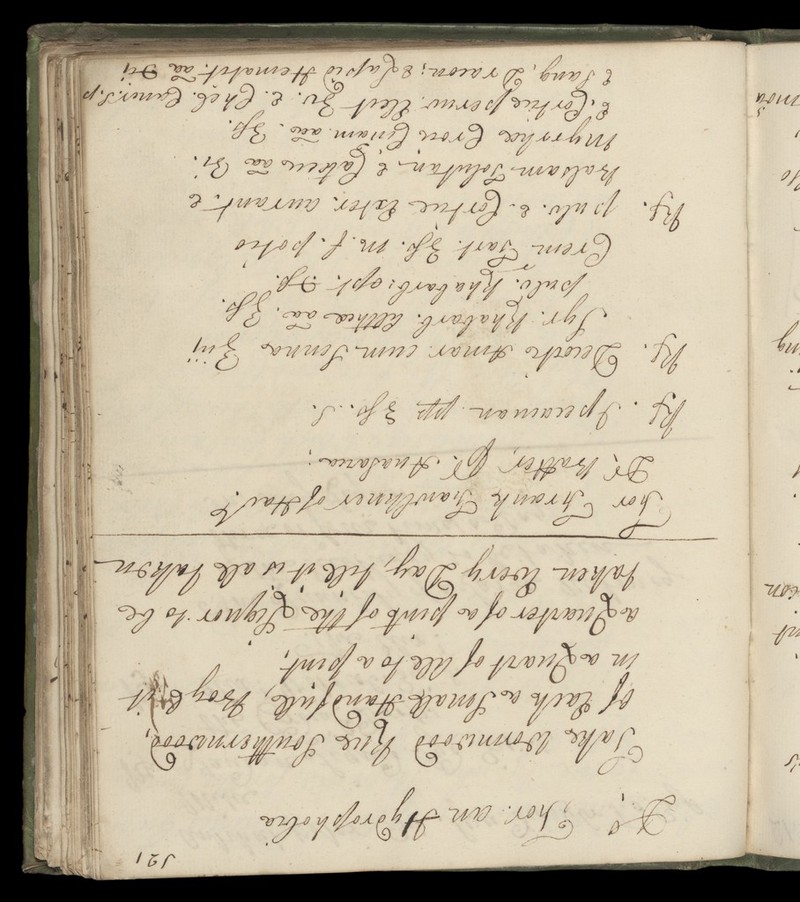 121
Dr. Thor. an Hydrophobia
Take Wormwood Rue Southernwood,
of Each a Small Handfull, Boyle it
in a Quart of Ale to a pint;
a Quarter of a pint of the Liquor to be
taken Every Day, till it is all taken
For Frank Fawkner of
Dr. Batter, Anasarca
Rx. Ipecacuan. pp ʒß. S.
Rx. Decocti Amar. cum Senna ℥iii
Syr. Rhabarb. Althea aā. ℥ß.
pulv. Rhabarb: opt. ℈ß.
Crem Tart. ʒß. m. f. potio
Rx. pulv. e. Cortice Exter. aurant. e
Balsam Tolutan; e aā ʒi.
Myrrhæ Croci aā. ʒß.
e. Cortice peruv. Elect ʒv. e. Chel. Cancr. S.p
e Sang. Dracon: e Lapid Hematit. aā ℈ii